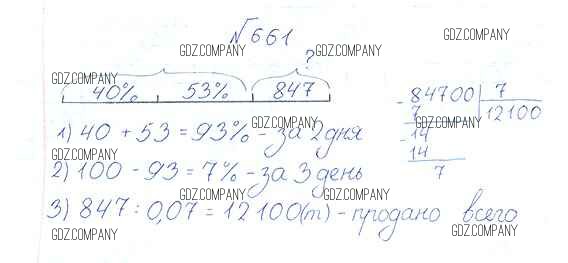 №661
GDZ.COMPANY
GDZ.COMPANY GDZ.COMPANY
?
GDZ.COMPANY
40% 53% 847
84700 7
- 7 12100
GDZ.COMPANY
14
- 14
7
GDZ.COMPANY
1) 40 + 53 = 93% - за 2 дня
GDZ.COMPANY
2) 100 - 93 = 7% - за 3 день
GDZ.COMPANY GDZ.COMPANY
3) 847 : 0,07 = 12100(т) - продано всего
GDZ.COMPANY GDZ.COMPANY